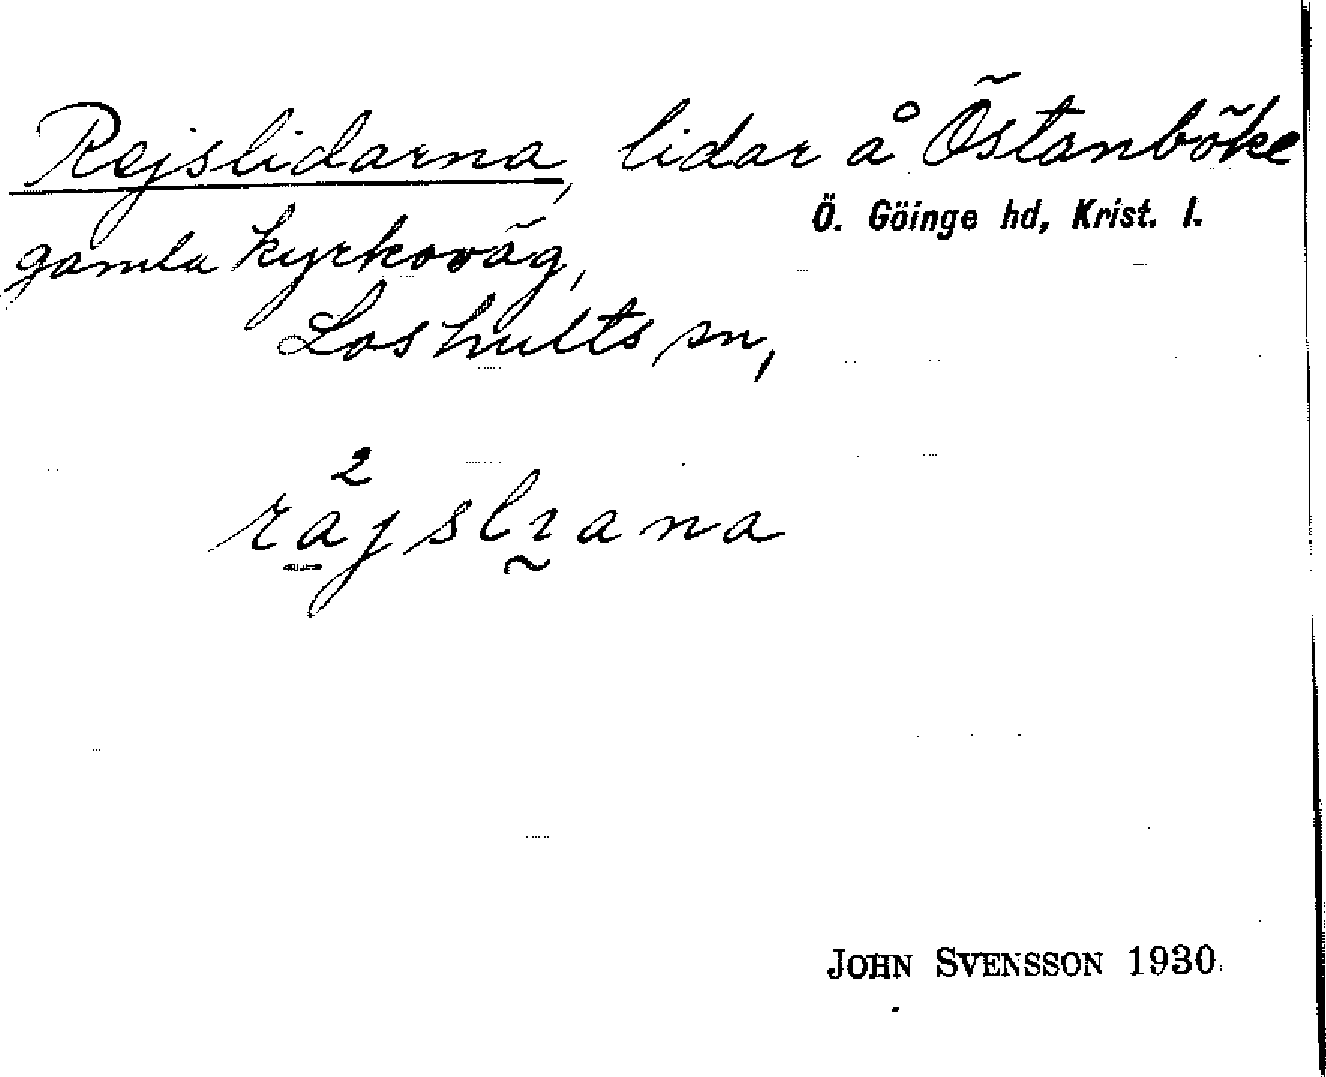 Rejslidarna, lidar å Östanböke
Ö. Göinge hd, Krist. l.
gamla kyrkoväg,
Loshults sn,
råjslıana
JOHN SVENSSON 1930.